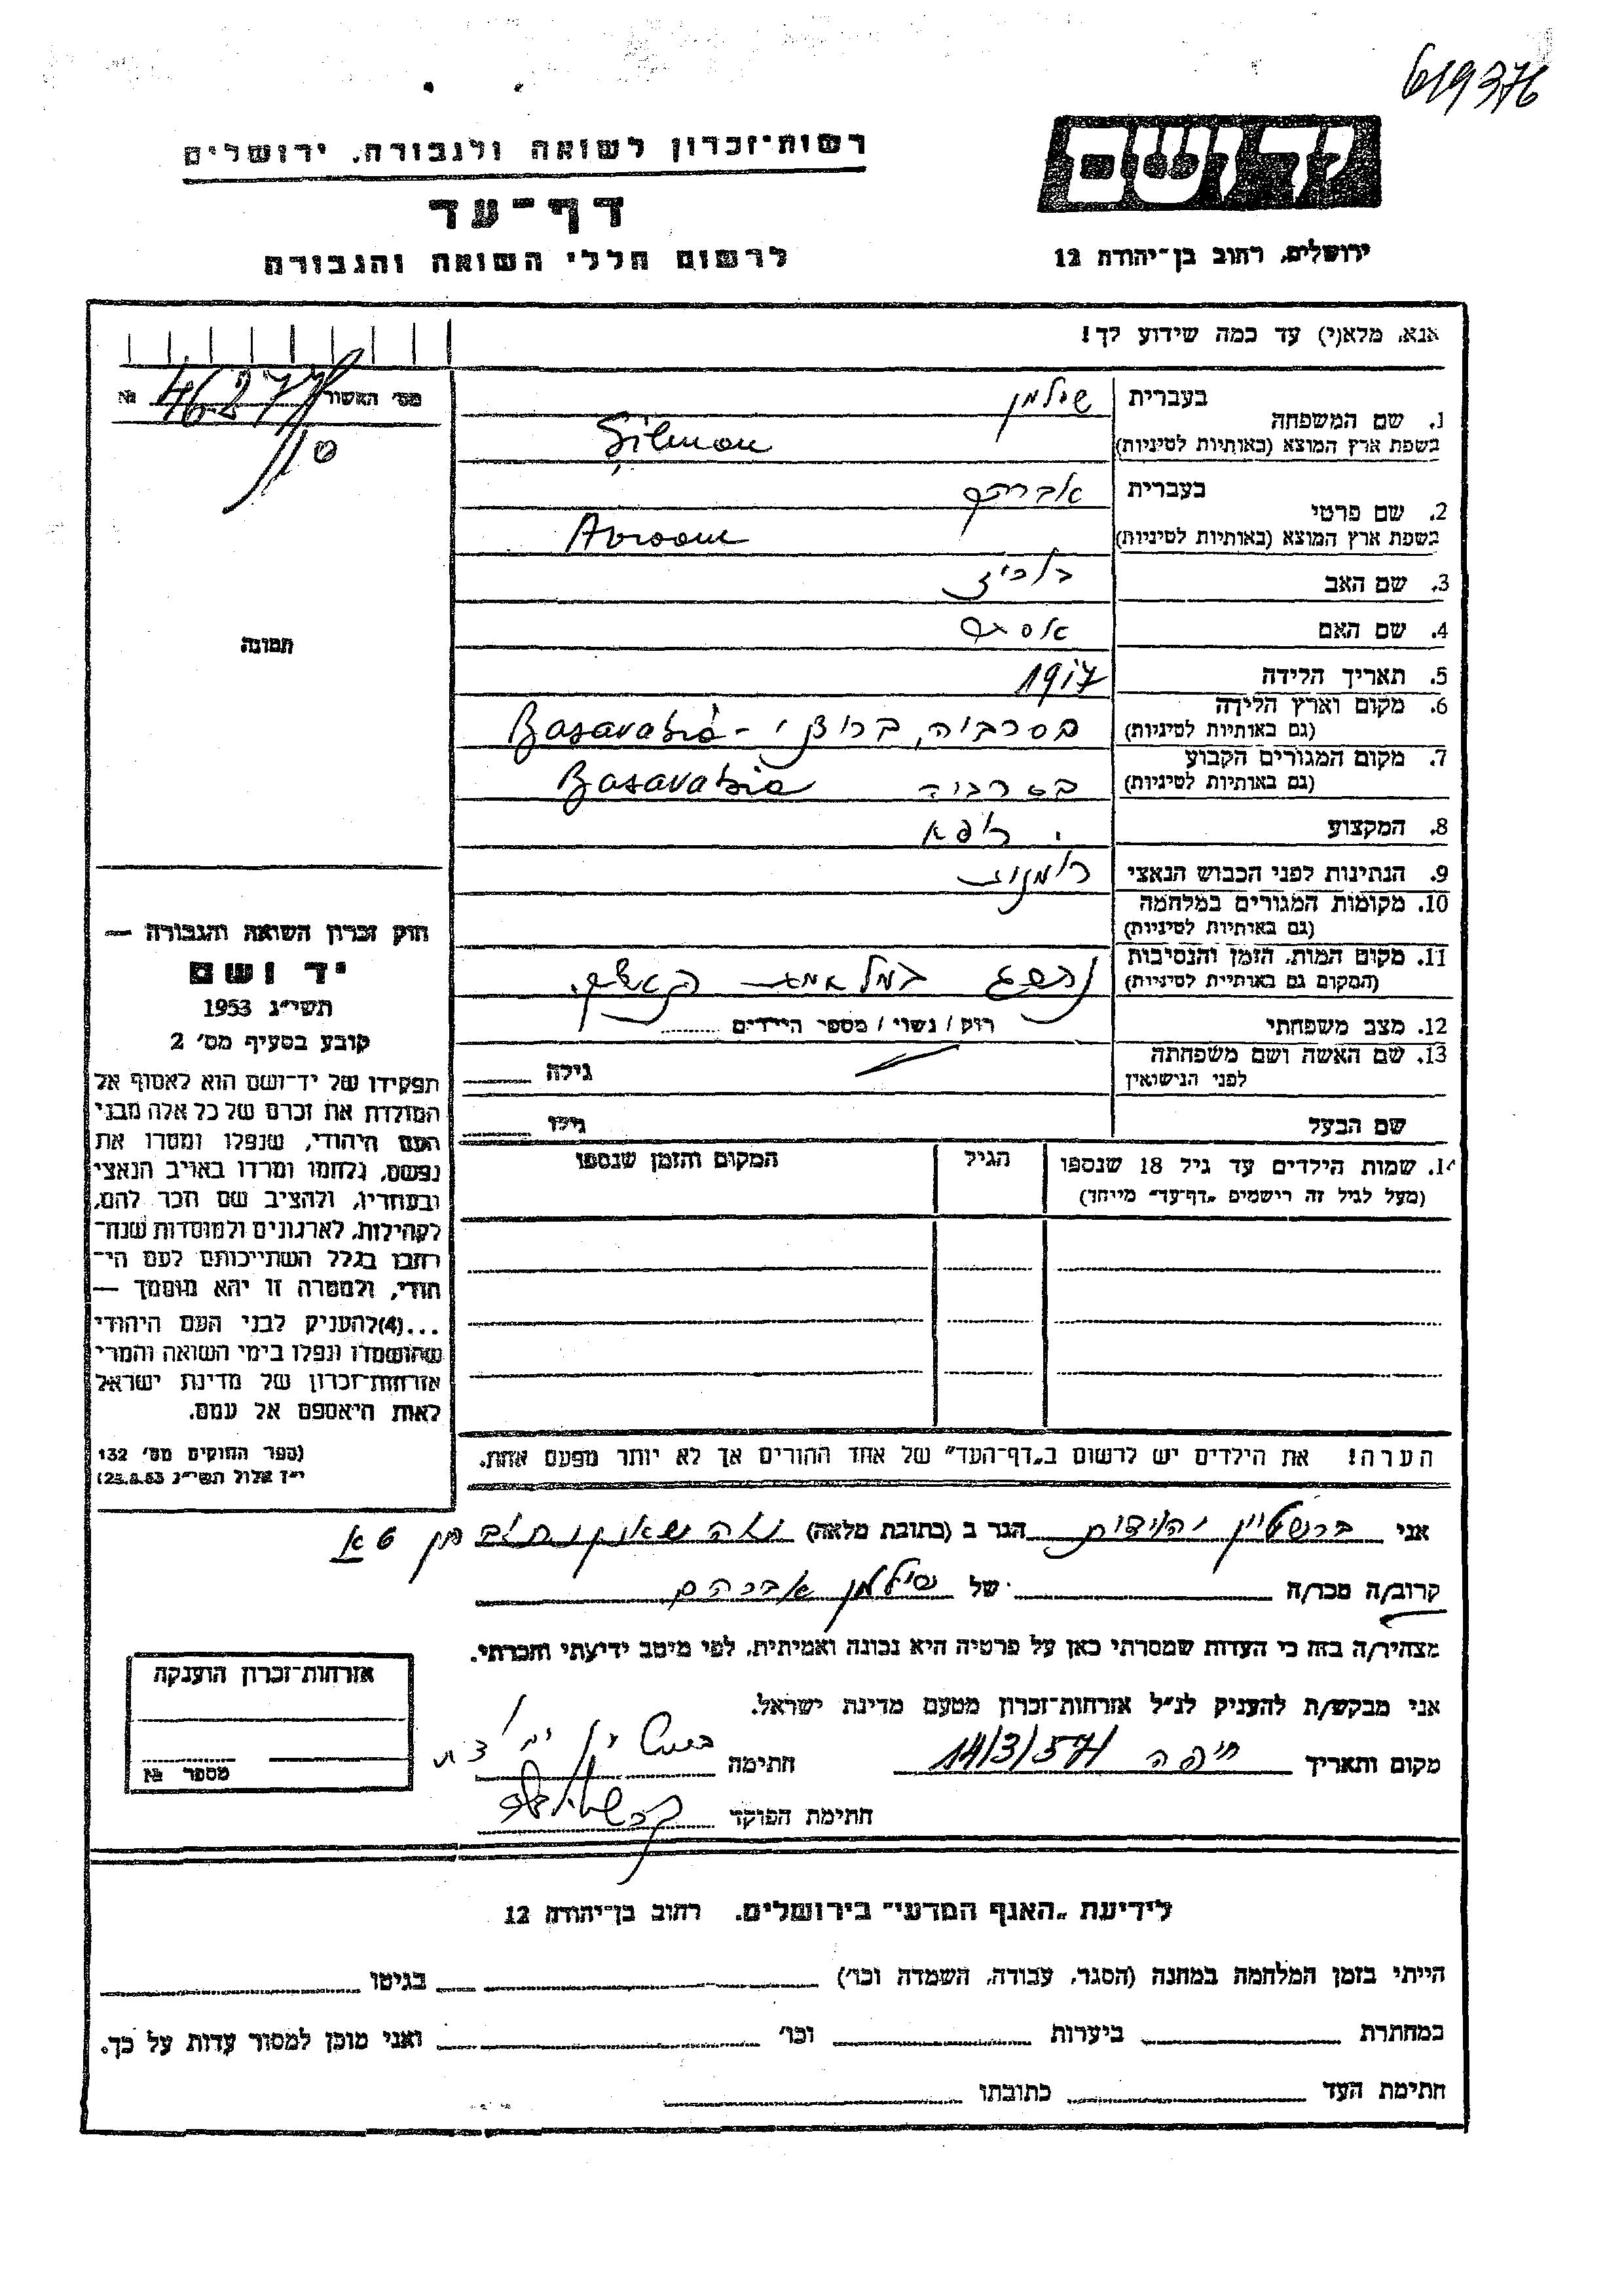 619376
רשות-זכרון לשואה ולגבורה. ירושלים
יד ושם
דף-עד
לרשום חללי השואה והגבורה
ירושלים, רחוב בן-יהודה 12
אנא, מלא(י) עד כמה שידוע לך!
מס׳ האשור № 46277
1. שם המשפחה
בעברית שילמן
בשפת ארץ המוצא (באותיות לטיניות) Şilman
2. שם פרטי
בעברית אברהם
בשפת ארץ המוצא (באותיות לטיניות) Avraam
3. שם האב
4. שם האם
5. תאריך הלידה 1917
6. מקום וארץ הלידה
(גם באותיות לטיניות) בסרביה, - Basarabia
7. מקום המגורים הקבוע
(גם באותיות לטיניות) בסרביה Basarabia
8. המקצוע רופא
9. הנתינות לפני הכבוש הנאצי
10. מקומות המגורים במלחמה
(גם באותיות לטיניות)
11. מקום המות, הזמן והנסיבות
(המקום גם באותיות לטיניות)
12. מצב משפחתי רווק / נשוי / מספר הילדים
13. שם האשה ושם משפחתה
לפני הנישואין גילה
שם הבעל גילו
14. שמות הילדים עד גיל 18 שנספו הגיל המקום והזמן שנספו
(מעל לגיל זה רישמים „דף-עד״ מייחד)
תמונה
חוק זכרון השואה והגבורה —
יד ושם
תשי״ג 1953
קובע בסעיף מס׳ 2
תפקידו של יד-ושם הוא לאסוף אל
המולדת את זכרם של כל אלה מבני
העם היהודי, שנפלו ומסרו את
נפשם, נלחמו ומרדו באויב הנאצי
ובעוזריו, ולהציב שם וזכר להם,
לקהילות, לארגונים ולמוסדות שנח־
רבו בגלל השתייכותם לעם הי־
הודי, ולמטרה זו יהא מוסמך —
...(4)להעניק לבני העם היהודי
שהושמדו ונפלו בימי השואה והמרי
אזרחות-זכרון של מדינת ישראל
לאות היאספם אל עמם.
(ספר החוקים מס׳ 132
י״ז אלול תשי״ג 28.8.53)
הערה! את הילדים יש לרשום ב„דף-העד״ של אחד ההורים אך לא יותר מפעם אחת.
אני ברנשטיין יהודית הגר ב (כתובת מלאה)
קרוב/ה מכר/ה של שילמן אברהם
מצהיר/ה בזה כי העדות שמסרתי כאן על פרטיה היא נכונה ואמיתית, לפי מיטב ידיעתי והכרתי.
אני מבקש/ת להעניק לנ״ל אזרחות-זכרון מטעם מדינת ישראל.
מקום ותאריך חיפה 14/3/57 חתימה
חתימת הפוקד
אזרחות-זכרון הוענקה
מספר №
לידיעת „האגף המדעי״ בירושלים. רחוב בן-יהודה 12
הייתי בזמן המלחמה במחנה (הסגר, עבודה, השמדה וכו׳) בגיטו
במחתרת ביערות וכו׳ ואני מוכן למסור עדות על כך.
חתימת העד כתובתו